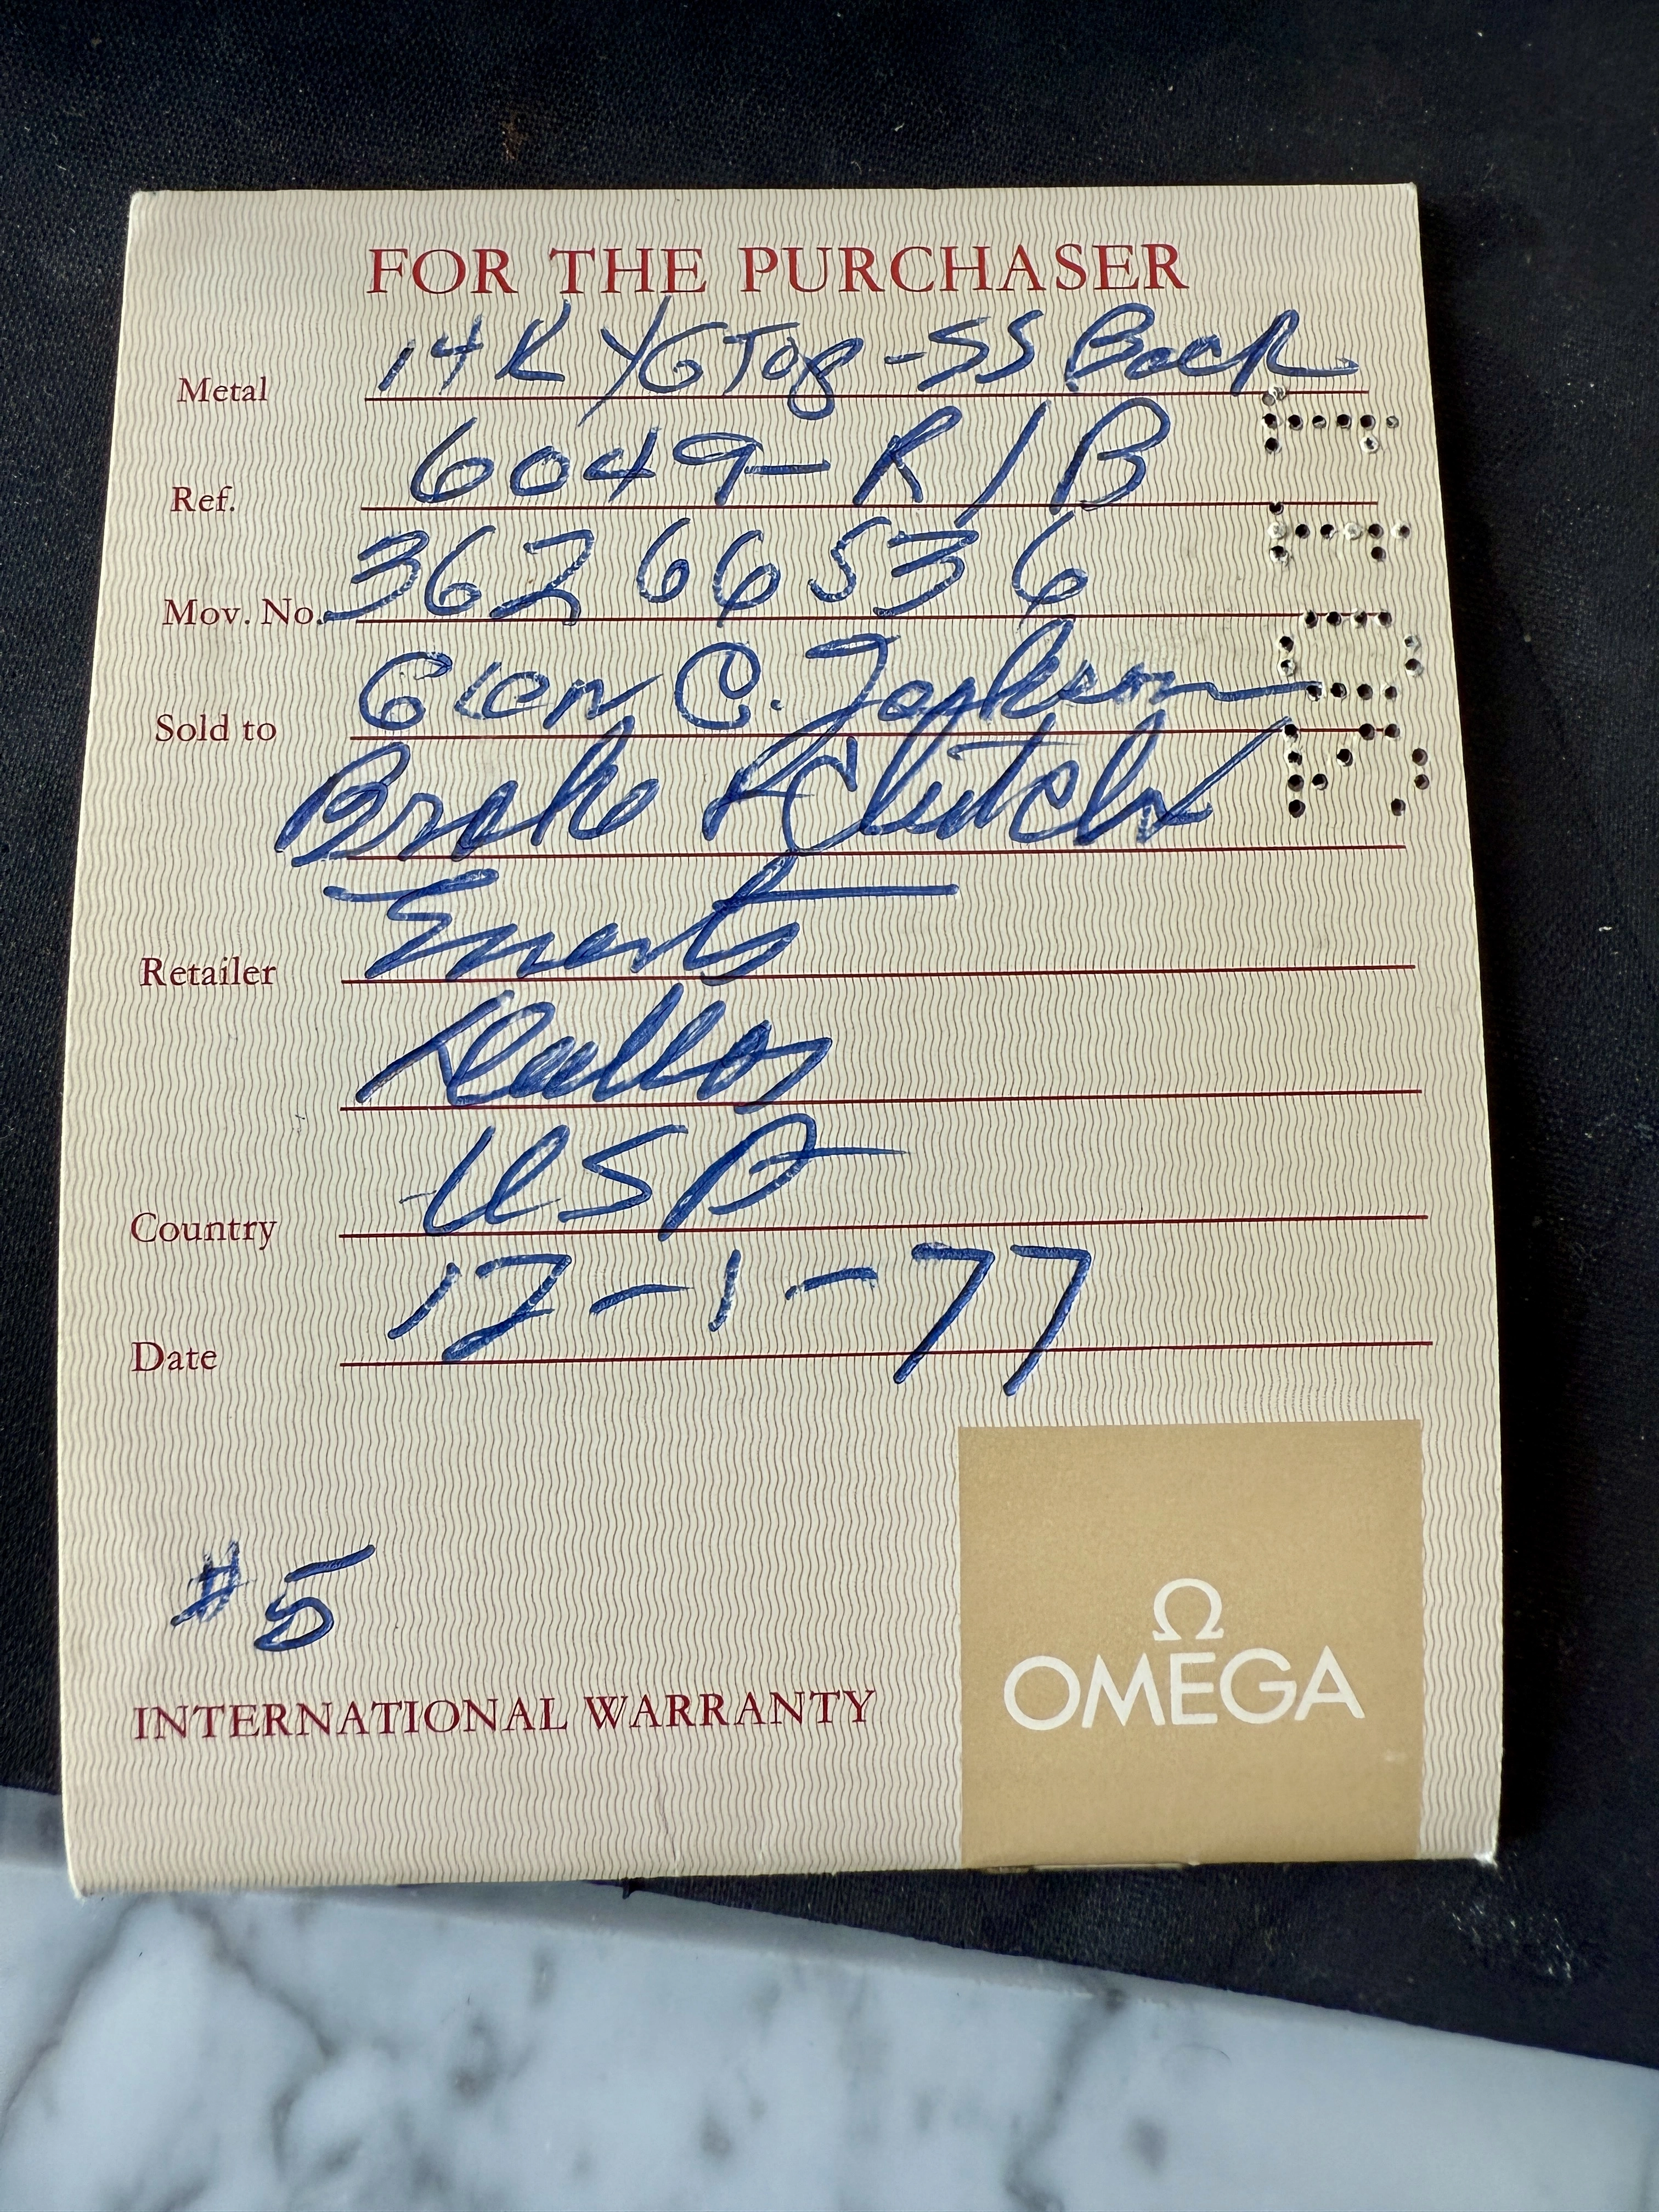 FOR THE PURCHASER
Metal 14K YG Top - SS Back
Ref. 6049- R / B
Mov. No. 36266536
Sold to Glen C. Jackson
Brake & Clutch
Retailer Everts
Dallas
Country USA
Date 12-1-77
#5
INTERNATIONAL WARRANTY
Ω
OMEGA